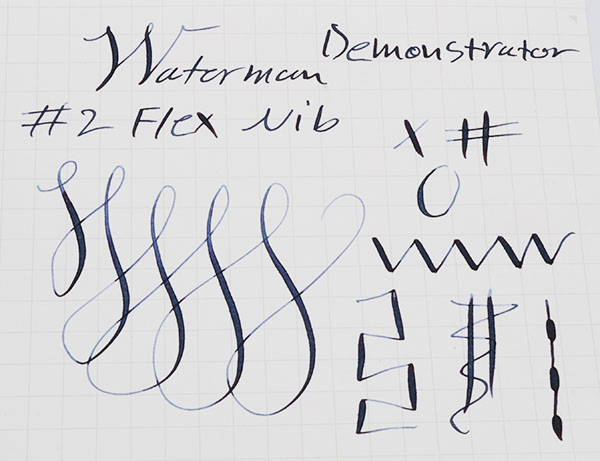 Waterman Demonstrator
#2 Flex Nib
X #
O